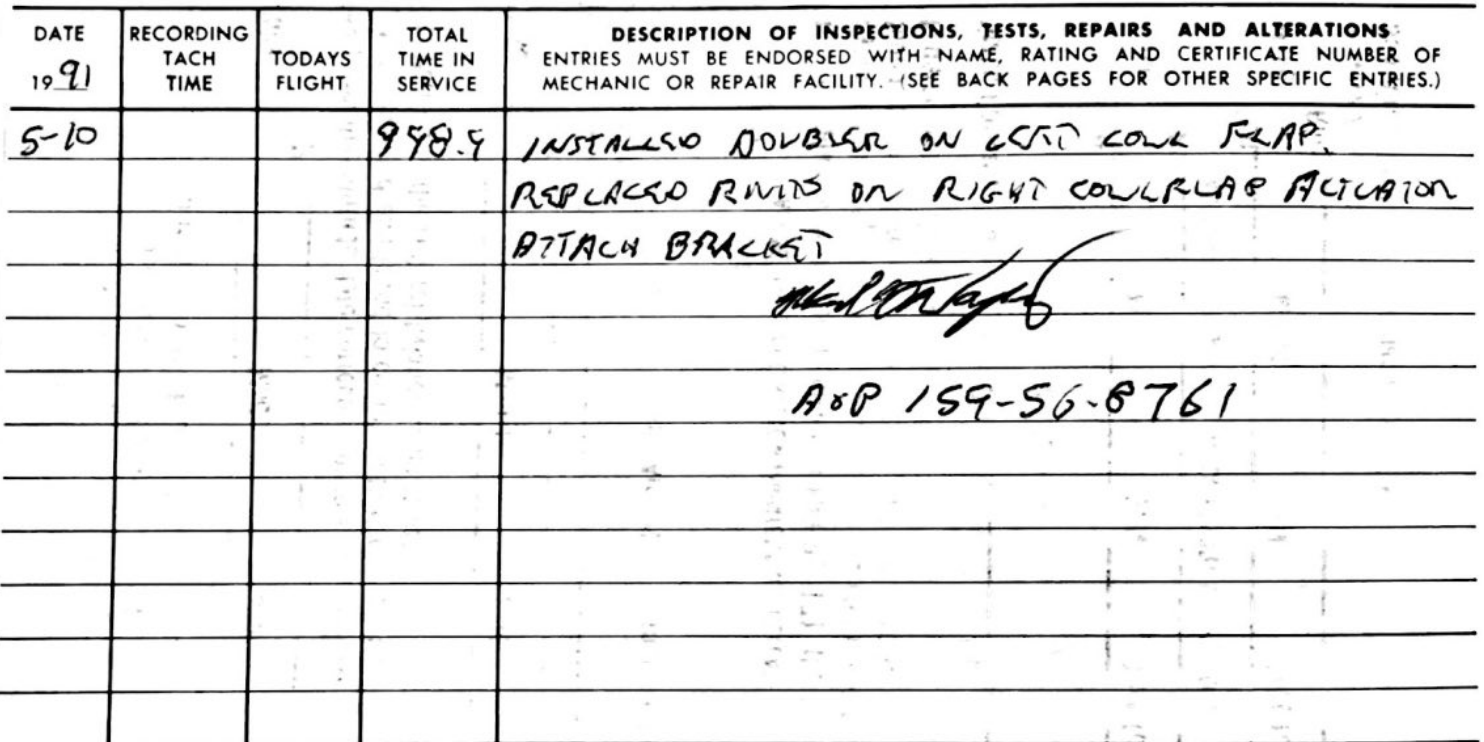 DATE
19 91
RECORDING
TACH
TIME
TODAYS
FLIGHT
TOTAL
TIME IN
SERVICE
DESCRIPTION OF INSPECTIONS, TESTS, REPAIRS AND ALTERATIONS
ENTRIES MUST BE ENDORSED WITH NAME, RATING AND CERTIFICATE NUMBER OF
MECHANIC OR REPAIR FACILITY. (SEE BACK PAGES FOR OTHER SPECIFIC ENTRIES.)
5-10 INSTALLED DOUBLER ON LEFT COWL FLAP.
REPLACED RIVITS ON RIGHT COWLFLAP ACTUATOR
ATTACH BRACKET
A&P 159-56-8761